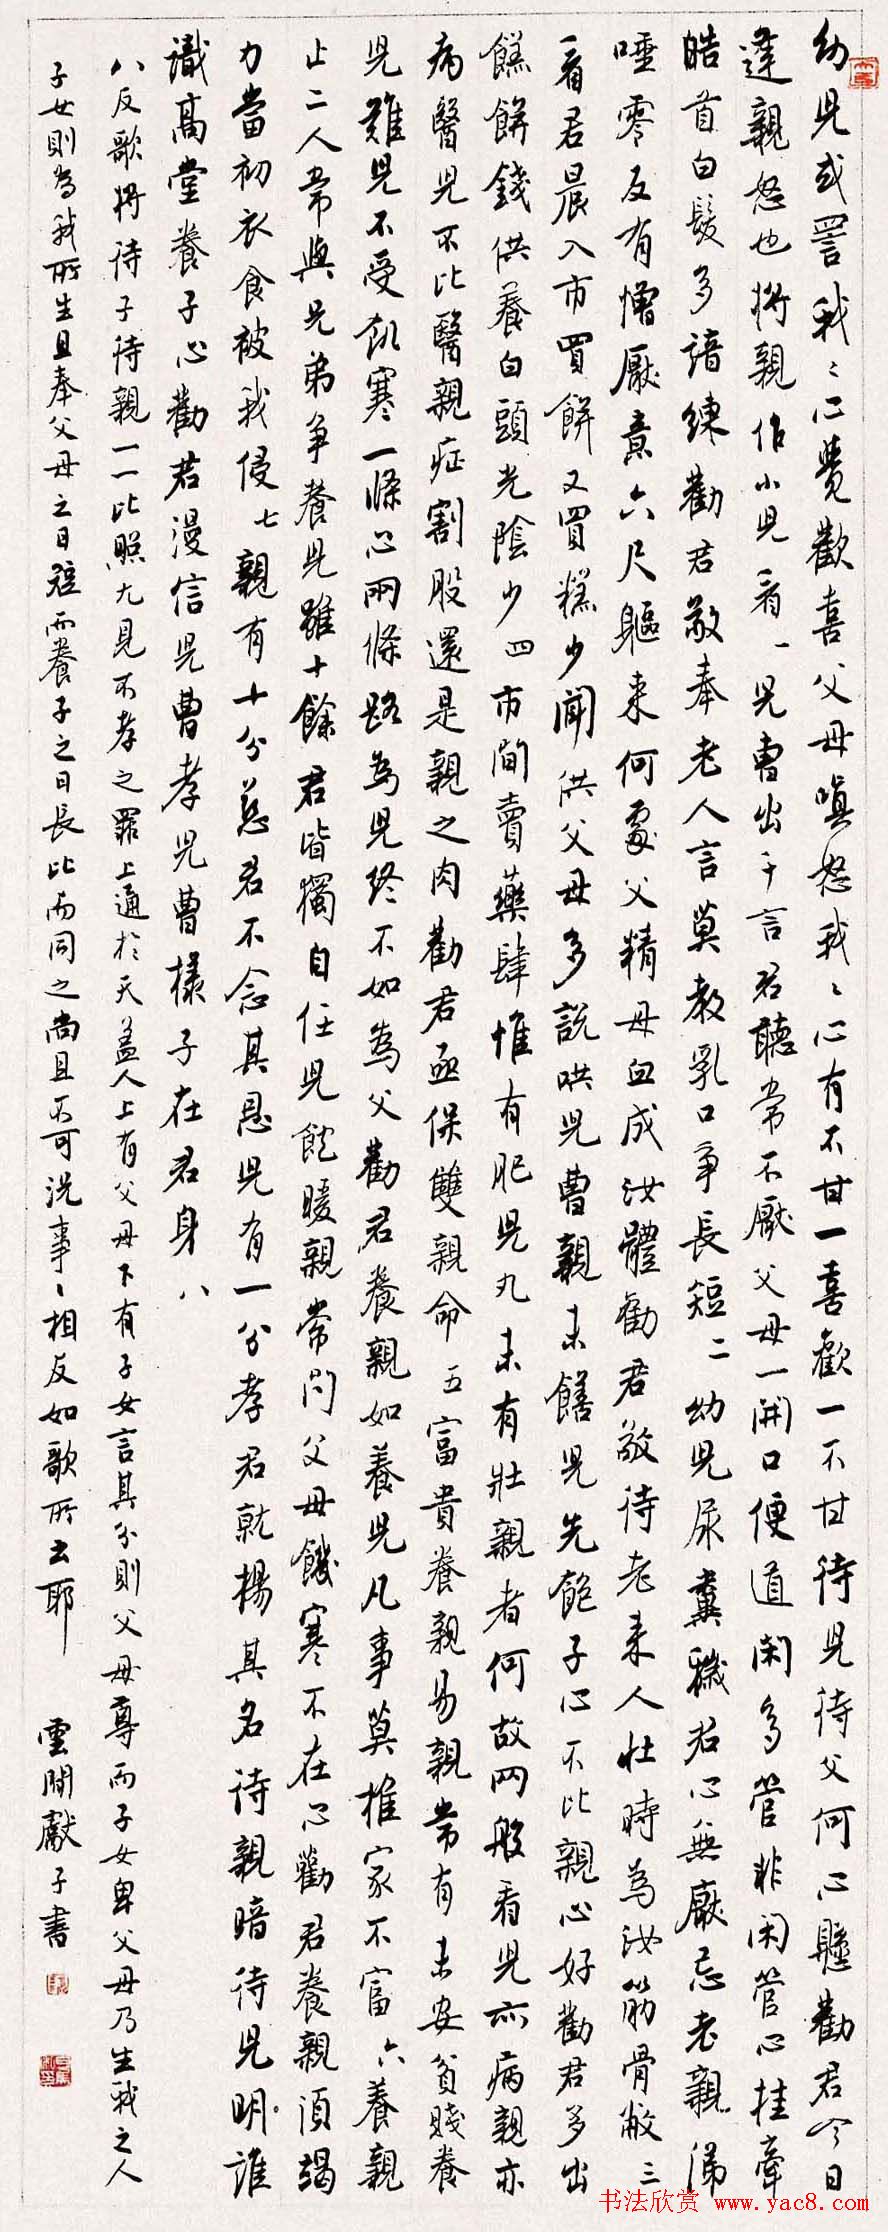 幼児或詈我〻心覺歡喜父母嗔怒我〻心有不甘一喜歡一不甘待児待父何心懸勸君今日
逢親怒也將親作小児看一児曹出千言君聽常不厭父母一開口便道閑多管非閑管心挂牽
皓首白髮多諳練勸君敬奉老人言莫教乳口爭長短二幼児尿糞穢君心無厭忌老親涕
唾零反有憎厭意六尺軀来何處父精母血成汝體勸君敬待老来人壮時為汝筋骨敝三
看君晨入市買餅又買糕少聞供父母多說哄児曹親未饍児先飽子心不比親心好勸君多出
糕餅錢供養白頭光陰少四市間賣藥肆惟有肥児丸未有壮親者何故兩般看児亦病親亦
病醫児不比醫親症割股還是親之肉勸君亟保雙親命五富貴養親易親常有未安貧賤養
児難児不受飢寒一條心兩條路為児終不如為父勸君養親如養児凡事莫推家不富六養親
止二人常與兄弟爭養児雖十餘君皆獨自任児飽暖親常問父母饑寒不在心勸君養親須竭
力當初衣食被我侵七親有十分慈君不念其恩児有一分孝君就揚其名待親暗待児明誰
識高堂養子心勸君漫信児曹孝児曹樣子在君身八
八反歌將待子待親一一比照尤見不孝之罪上通於天蓋人上有父母下有子女言其分則父母尊而子女卑父母乃生我之人
子女則為我所生且奉父母之日短而養子之日長比而同之尚且不可況事〻相反如歌所云耶
雲間獻子書
书法欣赏 www.yac8.com